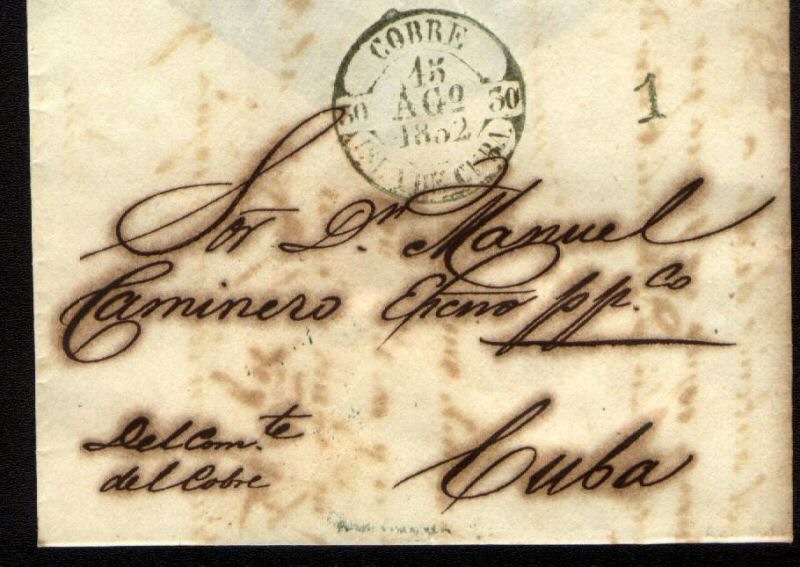 COBRE
15
AGO
1852
30 30
ISLA DE CUBA
1
Sor Dn Manuel
Caminero Escno ppco
Del Comte
del Cobre
Cuba